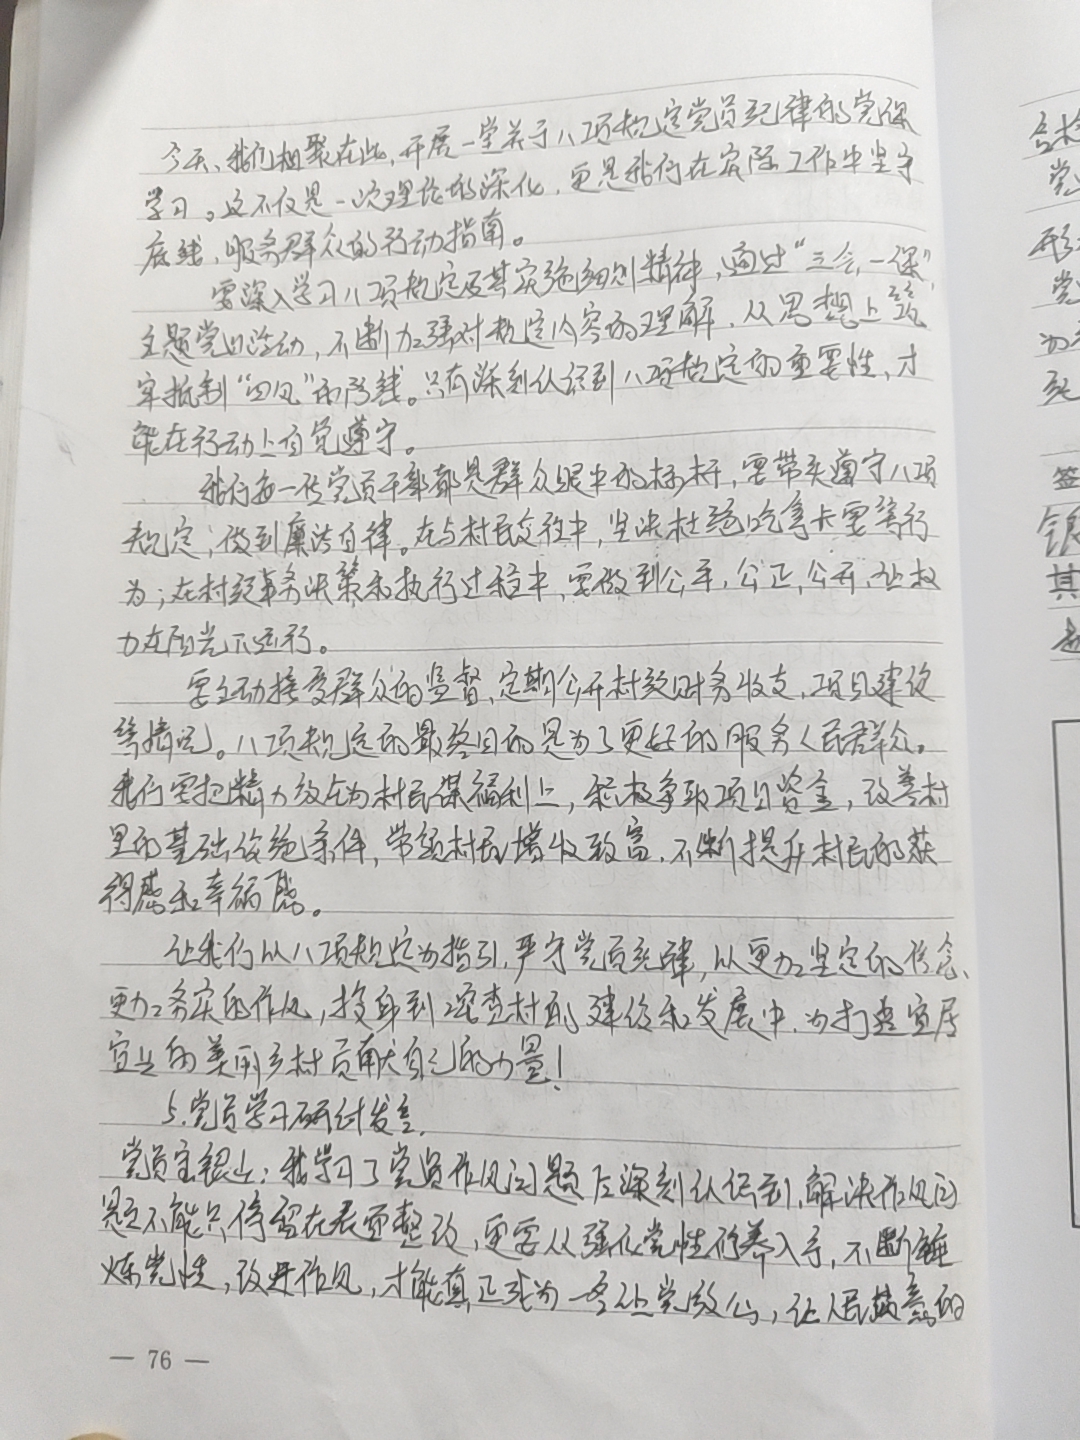 今天、我们相聚在此,开展一堂关于八项规定党员纪律的党课
学习。这不仅是一次理论的深化,更是我们在实际工作中坚守
底线,服务群众的行动指南。
要深入学习八项规定及其实施细则精神,通过“三会一课”,
主题党日活动,不断加强对规定内容的理解,从思想上筑
牢抵制“四风”的防线。只有深刻认识到八项规定的重要性,才
能在行动上自觉遵守。
我们每一位党员干部都是群众眼中的标杆,要带头遵守八项
规定,做到廉洁自律。在与村民交往中,坚决杜绝吃拿卡要等行
为;在村级事务决策和执行过程中,要做到公平,公正,公开,让权
力在阳光下运行。
要主动接受群众的监督,定期公开村级财务收支,项目建设
等情况。八项规定的最终目的是为了更好的服务人民群众。
我们要把精力放在为村民谋福利上,积极争取项目资金,改善村
里的基础设施条件,带领村民增收致富,不断提升村民的获
得感和幸福感。
让我们以八项规定为指引,严守党员纪律,以更加坚定的信念、
更加务实的作风,投身到 村的建设和发展中,为打造宜居
宜业的美丽乡村贡献自己的力量!
5.党员学习研讨发言.
党员 银 :我学习了党员作风问题后深刻认识到,解决作风问
题不能只停留在表面整改,更要从强化党性修养入手,不断锤
炼党性,改进作风,才能真正成为一名让党放心,让人民满意的
— 76 —
党
形
党
为
签
银
其